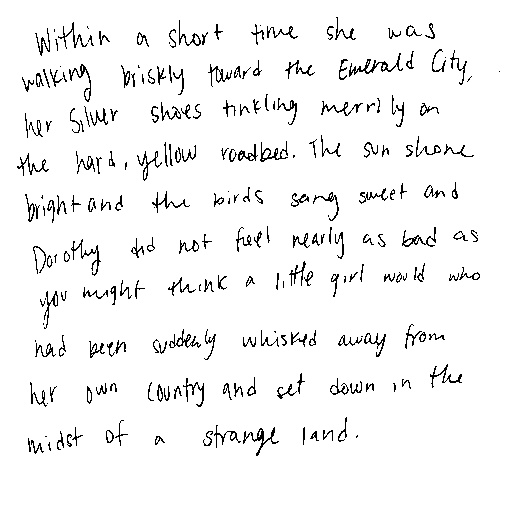 Within a short time she was
walking briskly toward the Emerald City,
her Silver Shoes tinkling merrily on
the hard, yellow roadbed. The sun shone
bright and the birds sang sweet and
Dorothy did not feel nearly as bad as
you might think a little girl would who
had been suddenly whisked away from
her own country and set down in the
midst of a strange land.